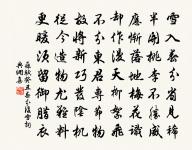 雪入春分省見稀
半開桃李不勝威
應慚落地梅花識
却作漫天柳絮飛
不分東君專節物
故將新巧發陰機
從今造物尤難料
更暖須留御臘衣
蘇軾癸丑春分後雪詞
典網集